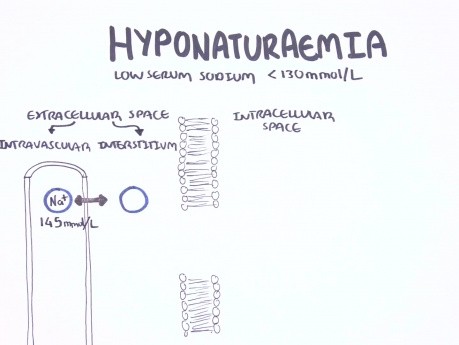 HYPONATURAEMIA
LOW SERUM SODIUM <130mmol/L
EXTRACELLULAR SPACE
INTRACELLULAR
SPACE
INTRAVASCULAR INTERSTITIUM
Na+
145mmol/L